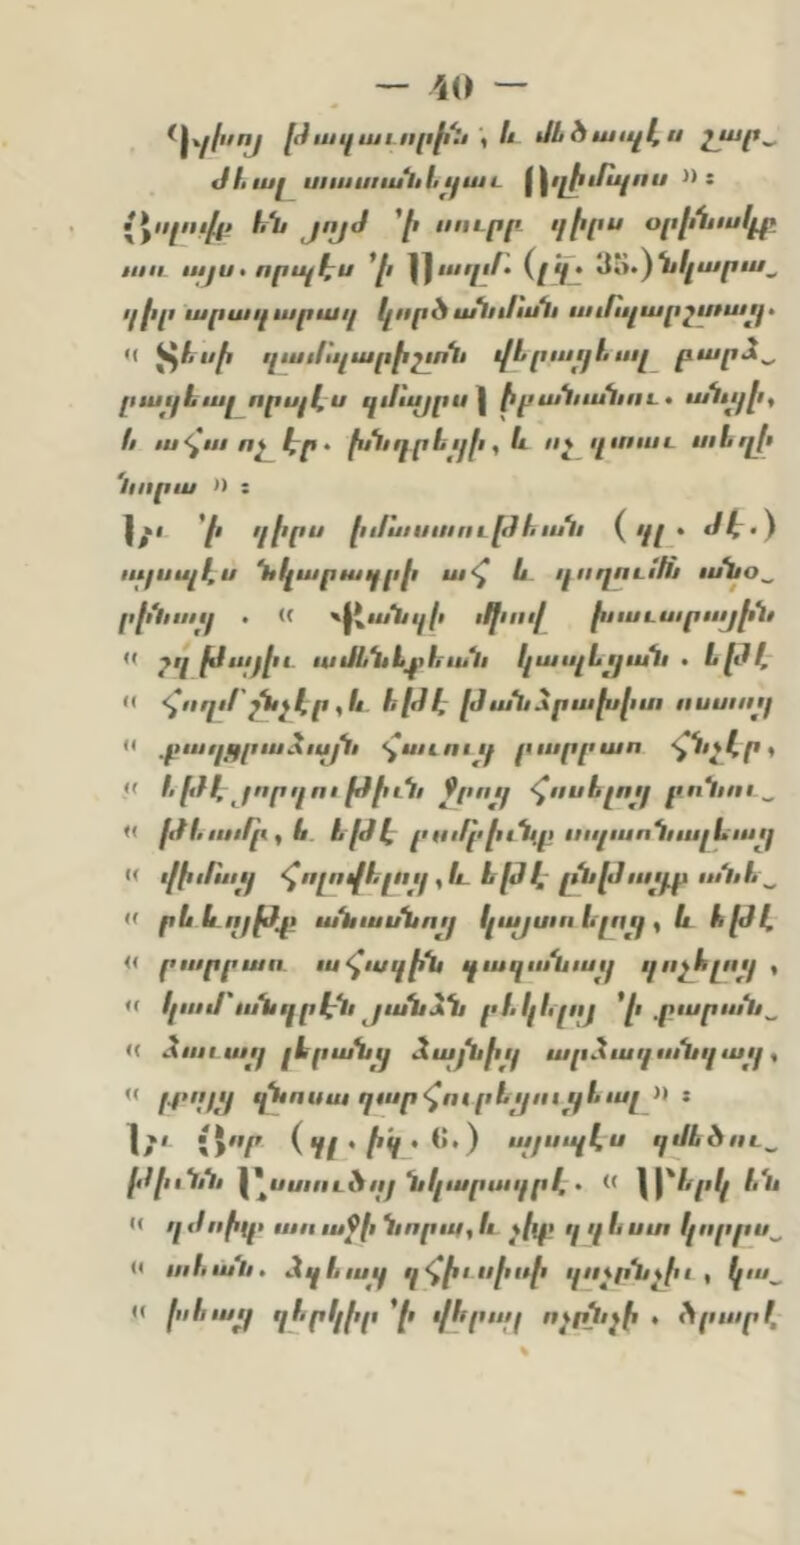 — 40 —
Գլխոյ թագաւորին , և մեծապէս շար֊
ժեալ սասանեցաւ Ողիմպոս » :
Յոլովք են յոյժ ՚ի սուրբ գիրս օրինակք
առ այս. որպէս ՚ի Սաղմ. (լզ. 35.) նկարա֊
գիր արագարագ կործանման ամպարշտաց.
« Տեսի զամպարիշտն վերացեալ բարձ֊
րացեալ որպէս զմայրս Լիբանանու. անցի,
և ահա ոչ էր. խնդրեցի, և ոչ գտաւ տեղի
նորա » :
Եւ ՚ի գիրս իմաստութեան ( գլ . ժէ.)
այսպէս նկարագրի ահ և դողումն անօ֊
րինաց . « Վանզի միով խաւարային
« շղթայիւ ամենեքեան կապեցան . եթէ
« հողմ շնչէր, և եթէ թանձրախիտ ոստոց
« քաղցրաձայն հաւուց բարբառ հնչէր,
« եթէ յորդութիւն ջրոց հոսելոց բռնու֊
« թեամբ, և եթէ բամբիւնք սպառնալեաց
« վիմաց հոլովելոց, և եթէ ընթացք անե֊
« րևևոյթք անասնոց կայտռելոց, և եթէ
« բարբառ ահագին գազանաց գոչելոց ,
« կամ անդրէն յանձն բեկելոյ ՚ի քարան֊
« ձաւաց լերանց ձայնից արձագանգաց,
« լքոյց զնոսա զարհուրեցուցեալ » :
Եւ Յոբ (գլ. իզ. 6.) այսպէս զմեծու֊
թիւնն Աստուծոյ նկարագրէ. « Մերկ են
« դժոխք առաջի նորա, և չիք զգեստ կորըս֊
« տեան. Ձգեաց զհիւսիսի զոչընչիւ , կա֊
« խեաց զերկիր ՚ի վերայ ոչընչի . Ծրարէ